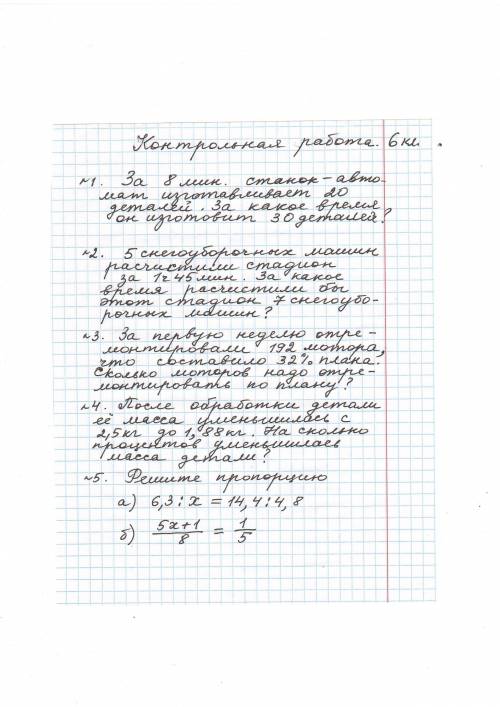 Контрольная работа. 6 кл.
№1. За 8 мин. станок-авто-
мат изготавливает 20
деталей. За какое время
он изготовит 30 деталей?
№2. 5 снегоуборочных машин
расчистили стадион
за 1ч 45 мин. За какое
время расчистили бы
этот стадион 7 снегоубо-
рочных машин?
№3. За первую неделю отре-
монтировали 192 мотора,
что составило 32% плана.
Сколько моторов надо отре-
монтировать по плану?
№4. После обработки детали
её масса уменьшилась с
2,5кг до 1,88кг. На сколько
процентов уменьшилась
масса детали?
№5. Решите пропорцию
а) 6,3 : x = 14,4 : 4,8
б) (5x+1)/8 = 1/5